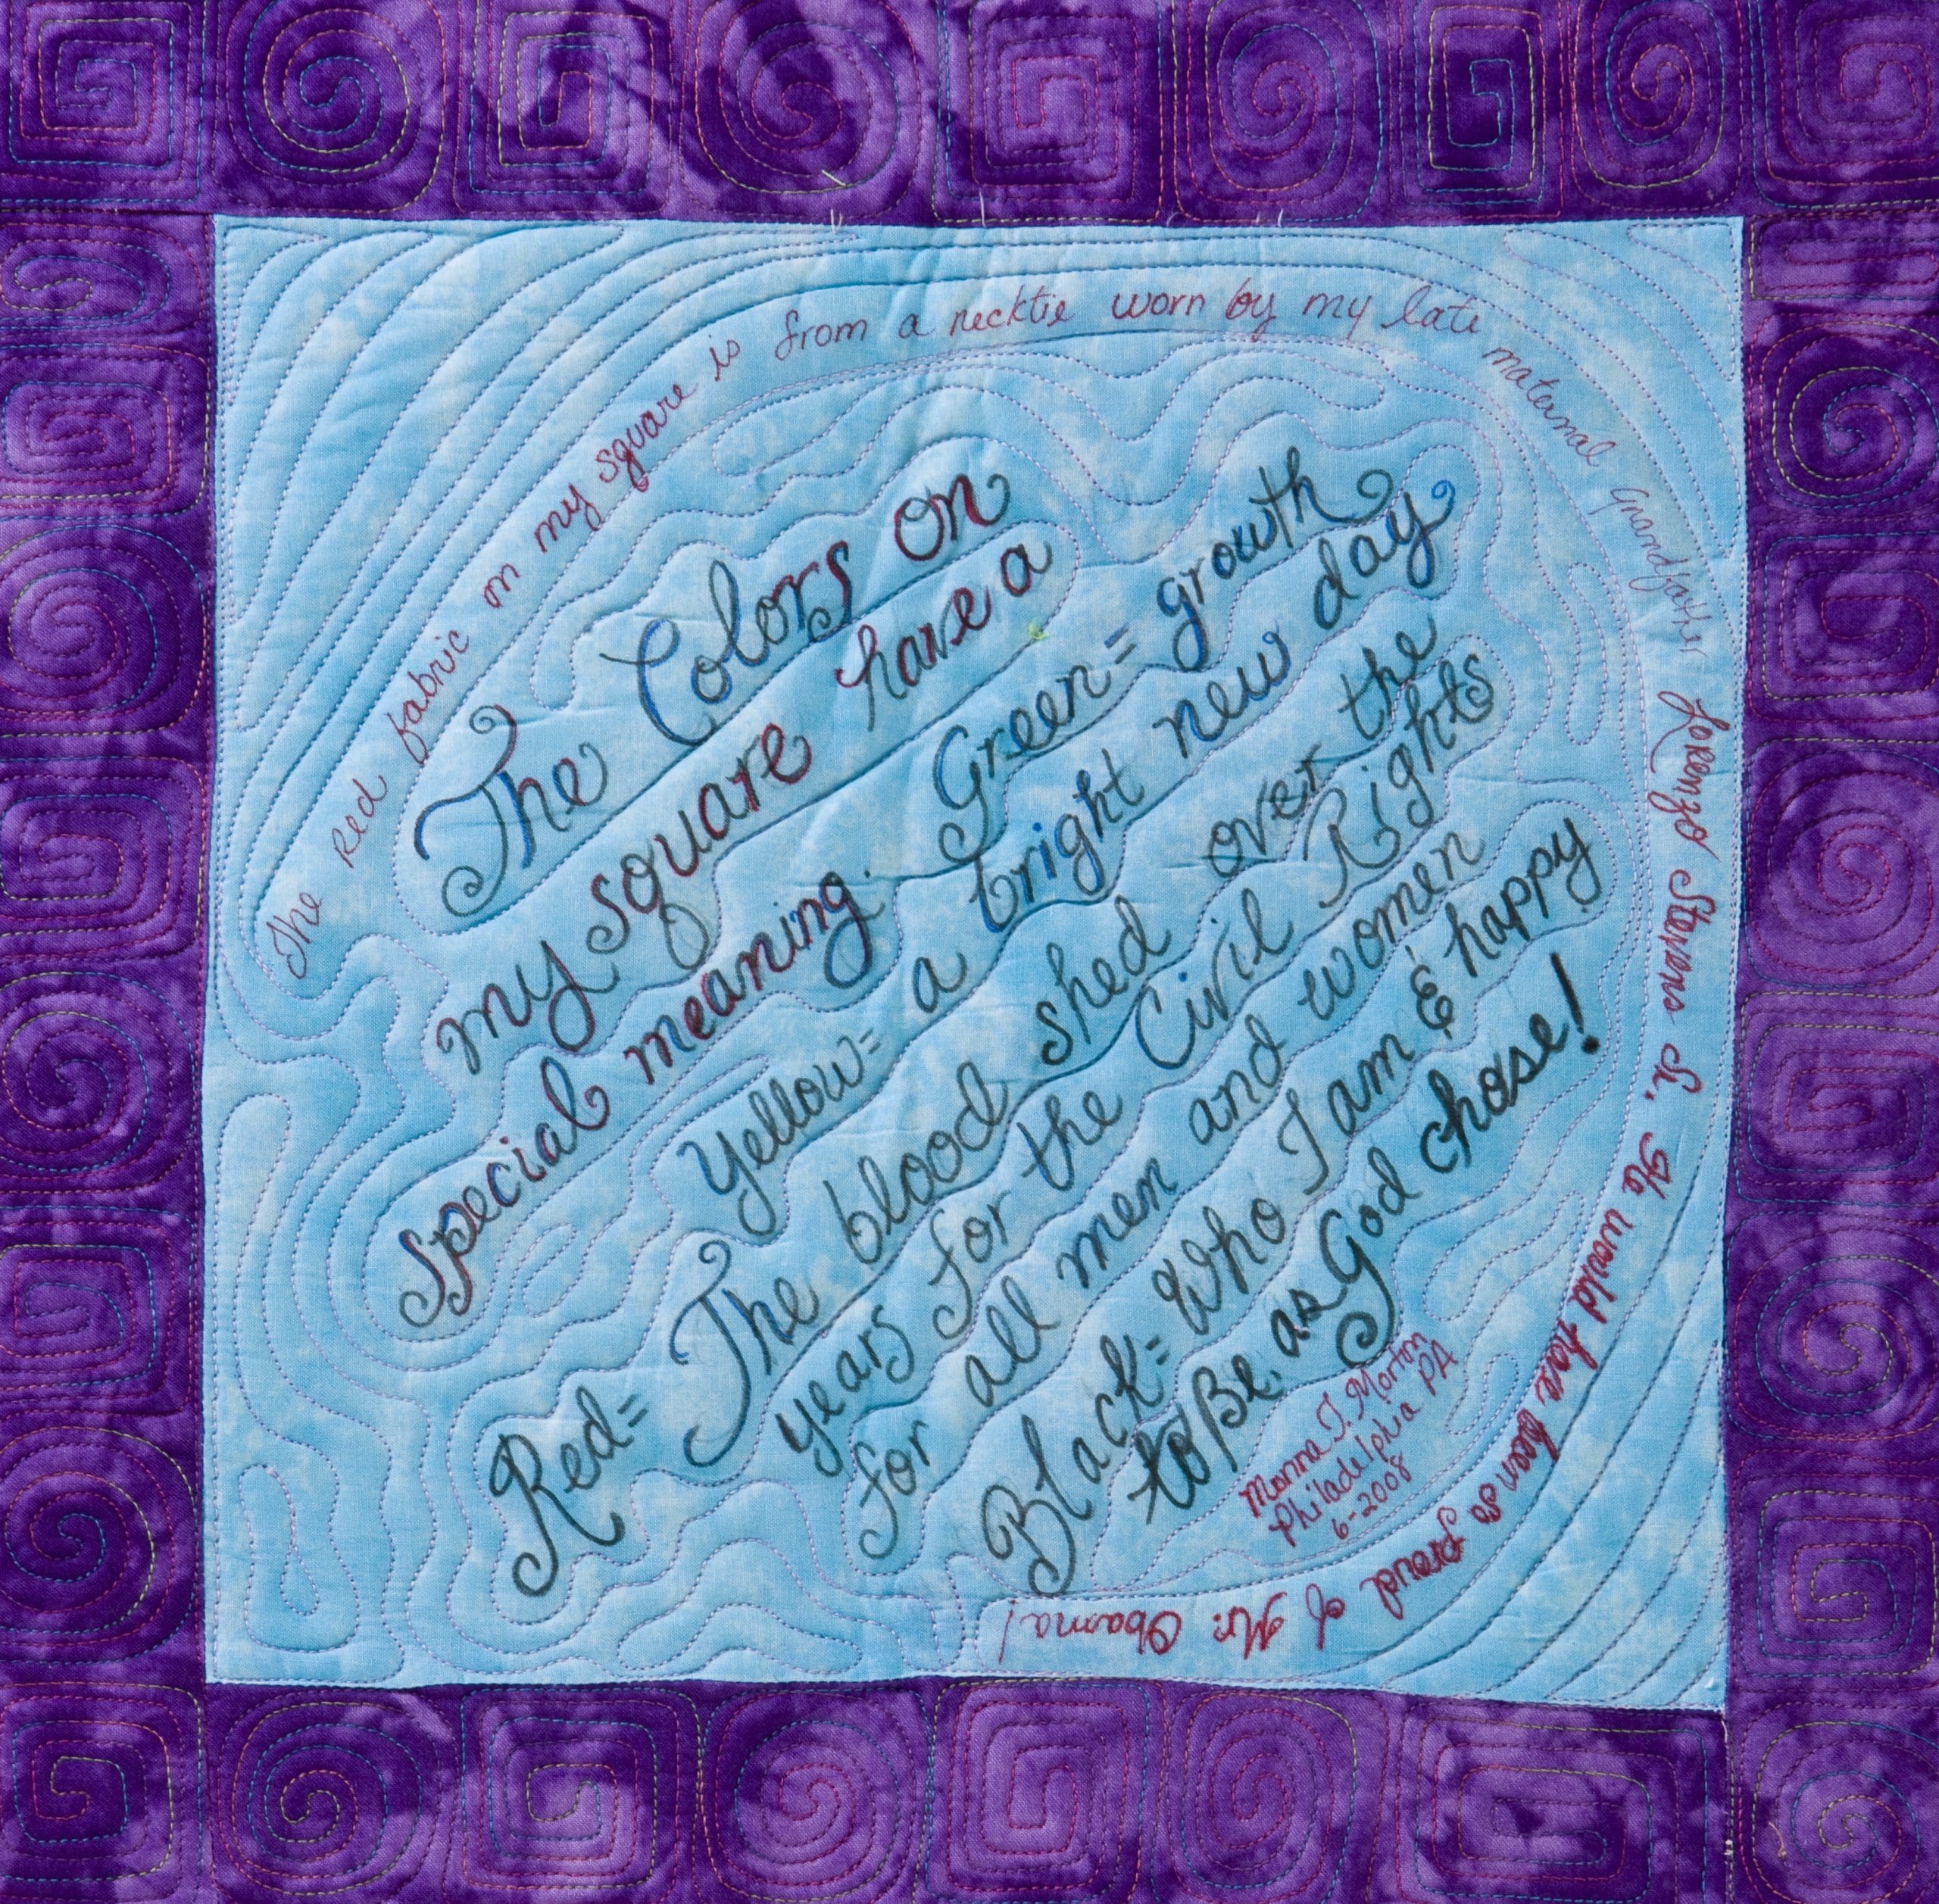 The Red fabric on my square is from a necktie worn by my late maternal Grandfather Lorenzo Stevens Sr. He would have been so proud of Mr. Obama!
The Colors on
my square have a
special meaning. Green = growth
Yellow = a bright new day
Red = The blood shed over the
years for the Civil Rights
for all men and women
Black = Who I am & happy
to Be as God chose!
T. Morton
Philadelphia PA
6-2008